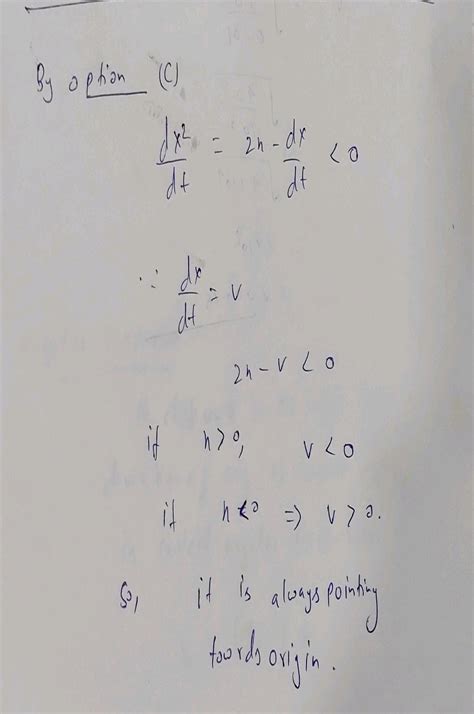 By option (C)
dx²/dt = 2n - dx/dt < 0
∵ dx/dt = v
2n - v < 0
if n>0, v<0
if n<0 ⇒ v>0.
So, it is always pointing
towrds origin.